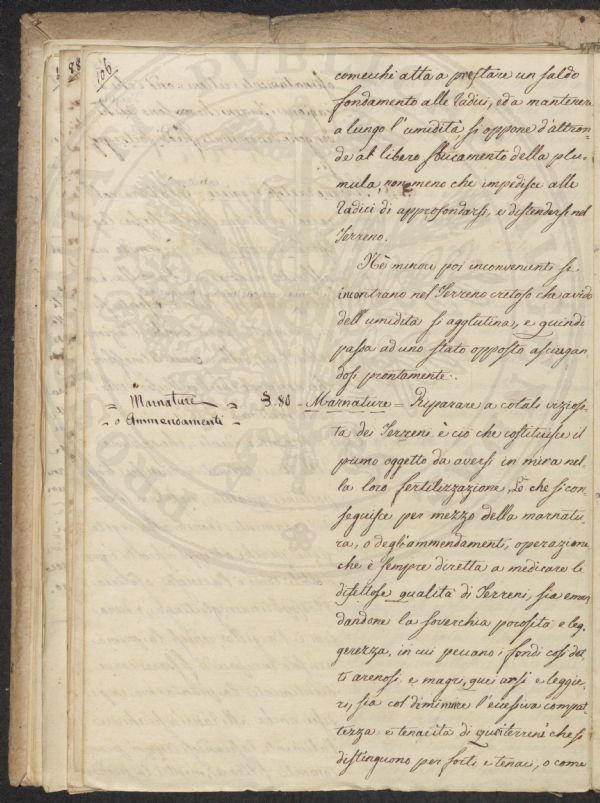 106
comecchè atta a prestare un saldo
fondamento alle radici, ed a mantenere
a lungo l'umidità si oppone d'altron-
de al libero sbucamento della plu-
mula, nonmeno che impedisce alle
radici di approfondarsi, e distendersi nel
Terreno.
Nè minori poi inconvenienti si
incontrano nel Terreno cretoso che avido
dell'umidità si agglutina, e quindi
passa ad uno stato opposto asciugan-
dosi prontamente.
= Marnature =
= o Ammendamenti =
§. 80 = Marnature = Riparare a cotali viziosi-
tà dei Terreni è ciò che costituisce il
primo oggetto da aversi in mira nel-
la loro fertilizzazione, Lo che si con-
seguisce per mezzo della marnatu-
ra, o degli ammendamenti, operazione
che è sempre diretta a medicare le
difettose qualità di Terreni, sia emen-
dandone la soverchia porosità e leg-
gerezza, in cui peccano i fondi così det-
ti arenosi e magri, quei arsi e leggie-
ri, sia col diminuire l'ecessiva compat-
tezza e tenacità di quei terreni che si
distinguono per forti e tenaci, o come